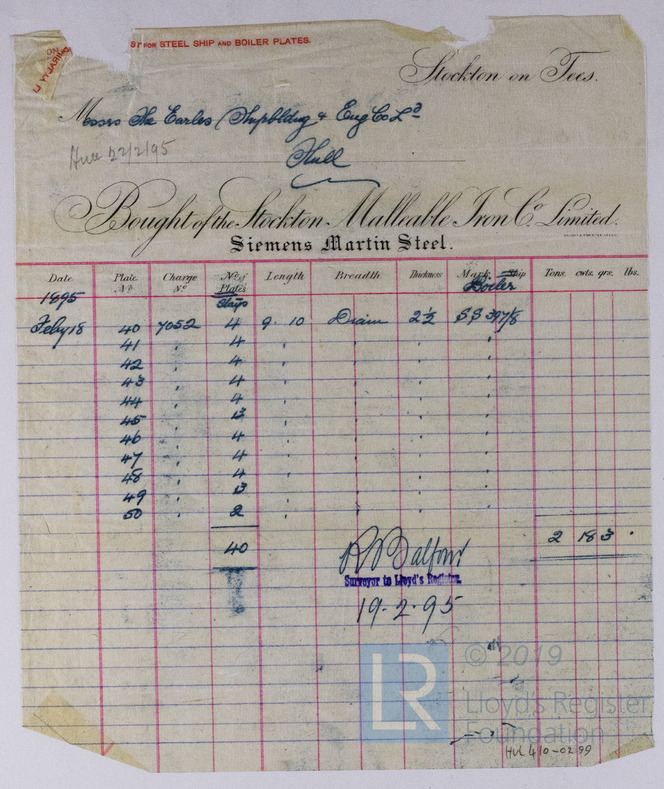 ST FOR STEEL SHIP AND BOILER PLATES.
Stockton on Tees.
Messrs The Earles Shipbldng & Eng Co Ld
Hull 22/2/95
Hull
Bought of the Stockton Malleable Iron Co. Limited.
Siemens Martin Steel.
Date Plate No. Charge No. No. of Plates Length Breadth Thickness Mark. Ship Tons. cwts. qrs. lbs.
1895 Stays Boiler
Feby 18 40 7052 4 9 . 10 Diam 2½ SS 397/8
41 " 4 " " " "
42 " 4 " " " "
43 " 4 " " " "
44 " 4 " " " "
45 " 3 " " " "
46 " 4 " " " "
47 " 4 " " " "
48 " 4 " " " "
49 " 3 " " " "
50 " 2 " " " "
40 2 18 3 .
R Balfour
Surveyor to Lloyd's Register.
19.2.95
LR
© 2019
Lloyd's Register
Foundation
HUL 410-0299